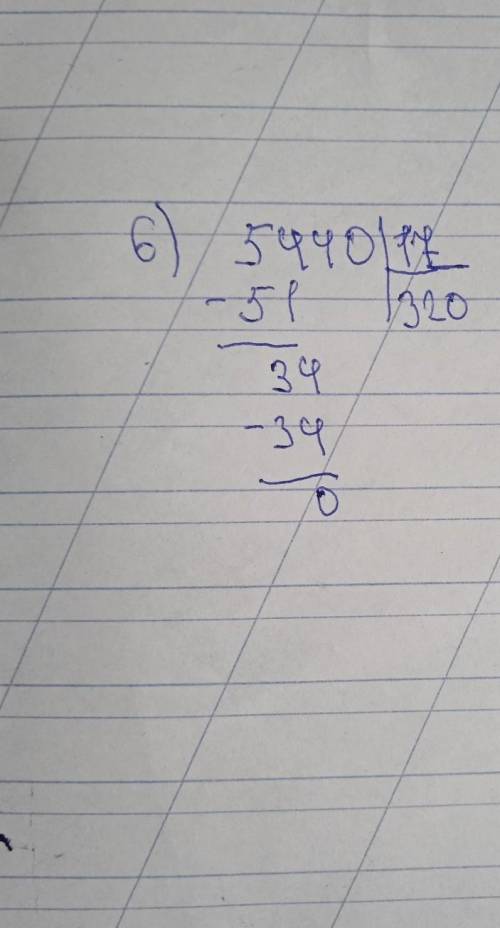 6) 5440 17
-51 320
34
-34
0